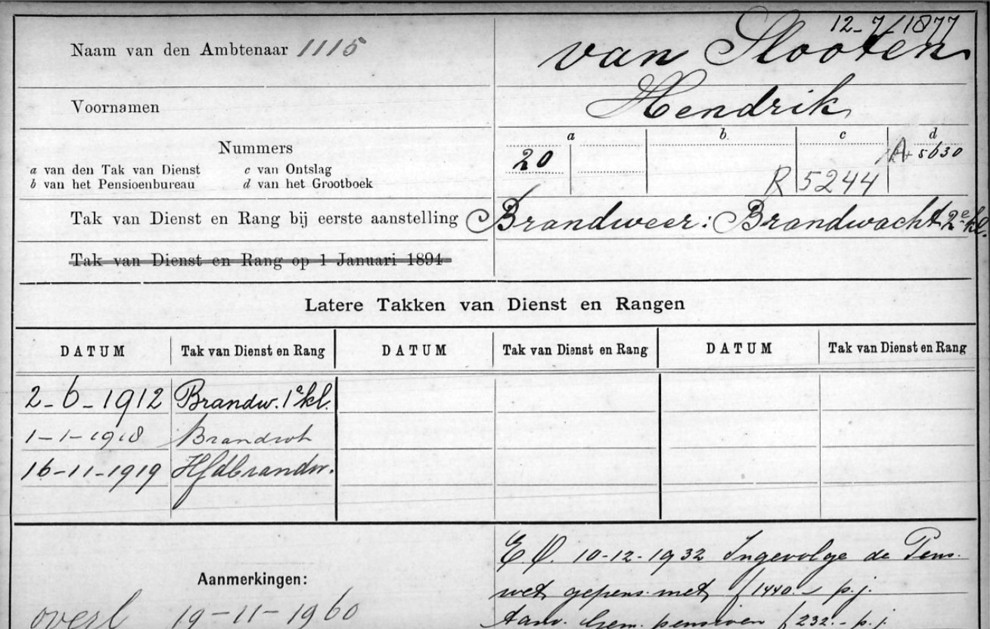 12-7-1877
Naam van den Ambtenaar 1115 van Slooten
Voornamen Hendrik
Nummers
a van den Tak van Dienst c van Ontslag
b van het Pensioenbureau d van het Grootboek
a b c d
20 R 5244 A 5630
Tak van Dienst en Rang bij eerste aanstelling Brandweer: Brandwacht 2e kl.
Tak van Dienst en Rang op 1 Januari 1894
Latere Takken van Dienst en Rangen
DATUM Tak van Dienst en Rang DATUM Tak van Dienst en Rang DATUM Tak van Dienst en Rang
2-6-1912 Brandw. 1e kl.
1-1-1918 Brandwt
16-11-1919 Hfdbrandw.
E O. 10-12-1932 Ingevolge de Pens.
Aanmerkingen: wet gepens met f 1440.- p.j.
overl 19-11-1960 Aanv. Gem. pensioen f 232.- p.j.